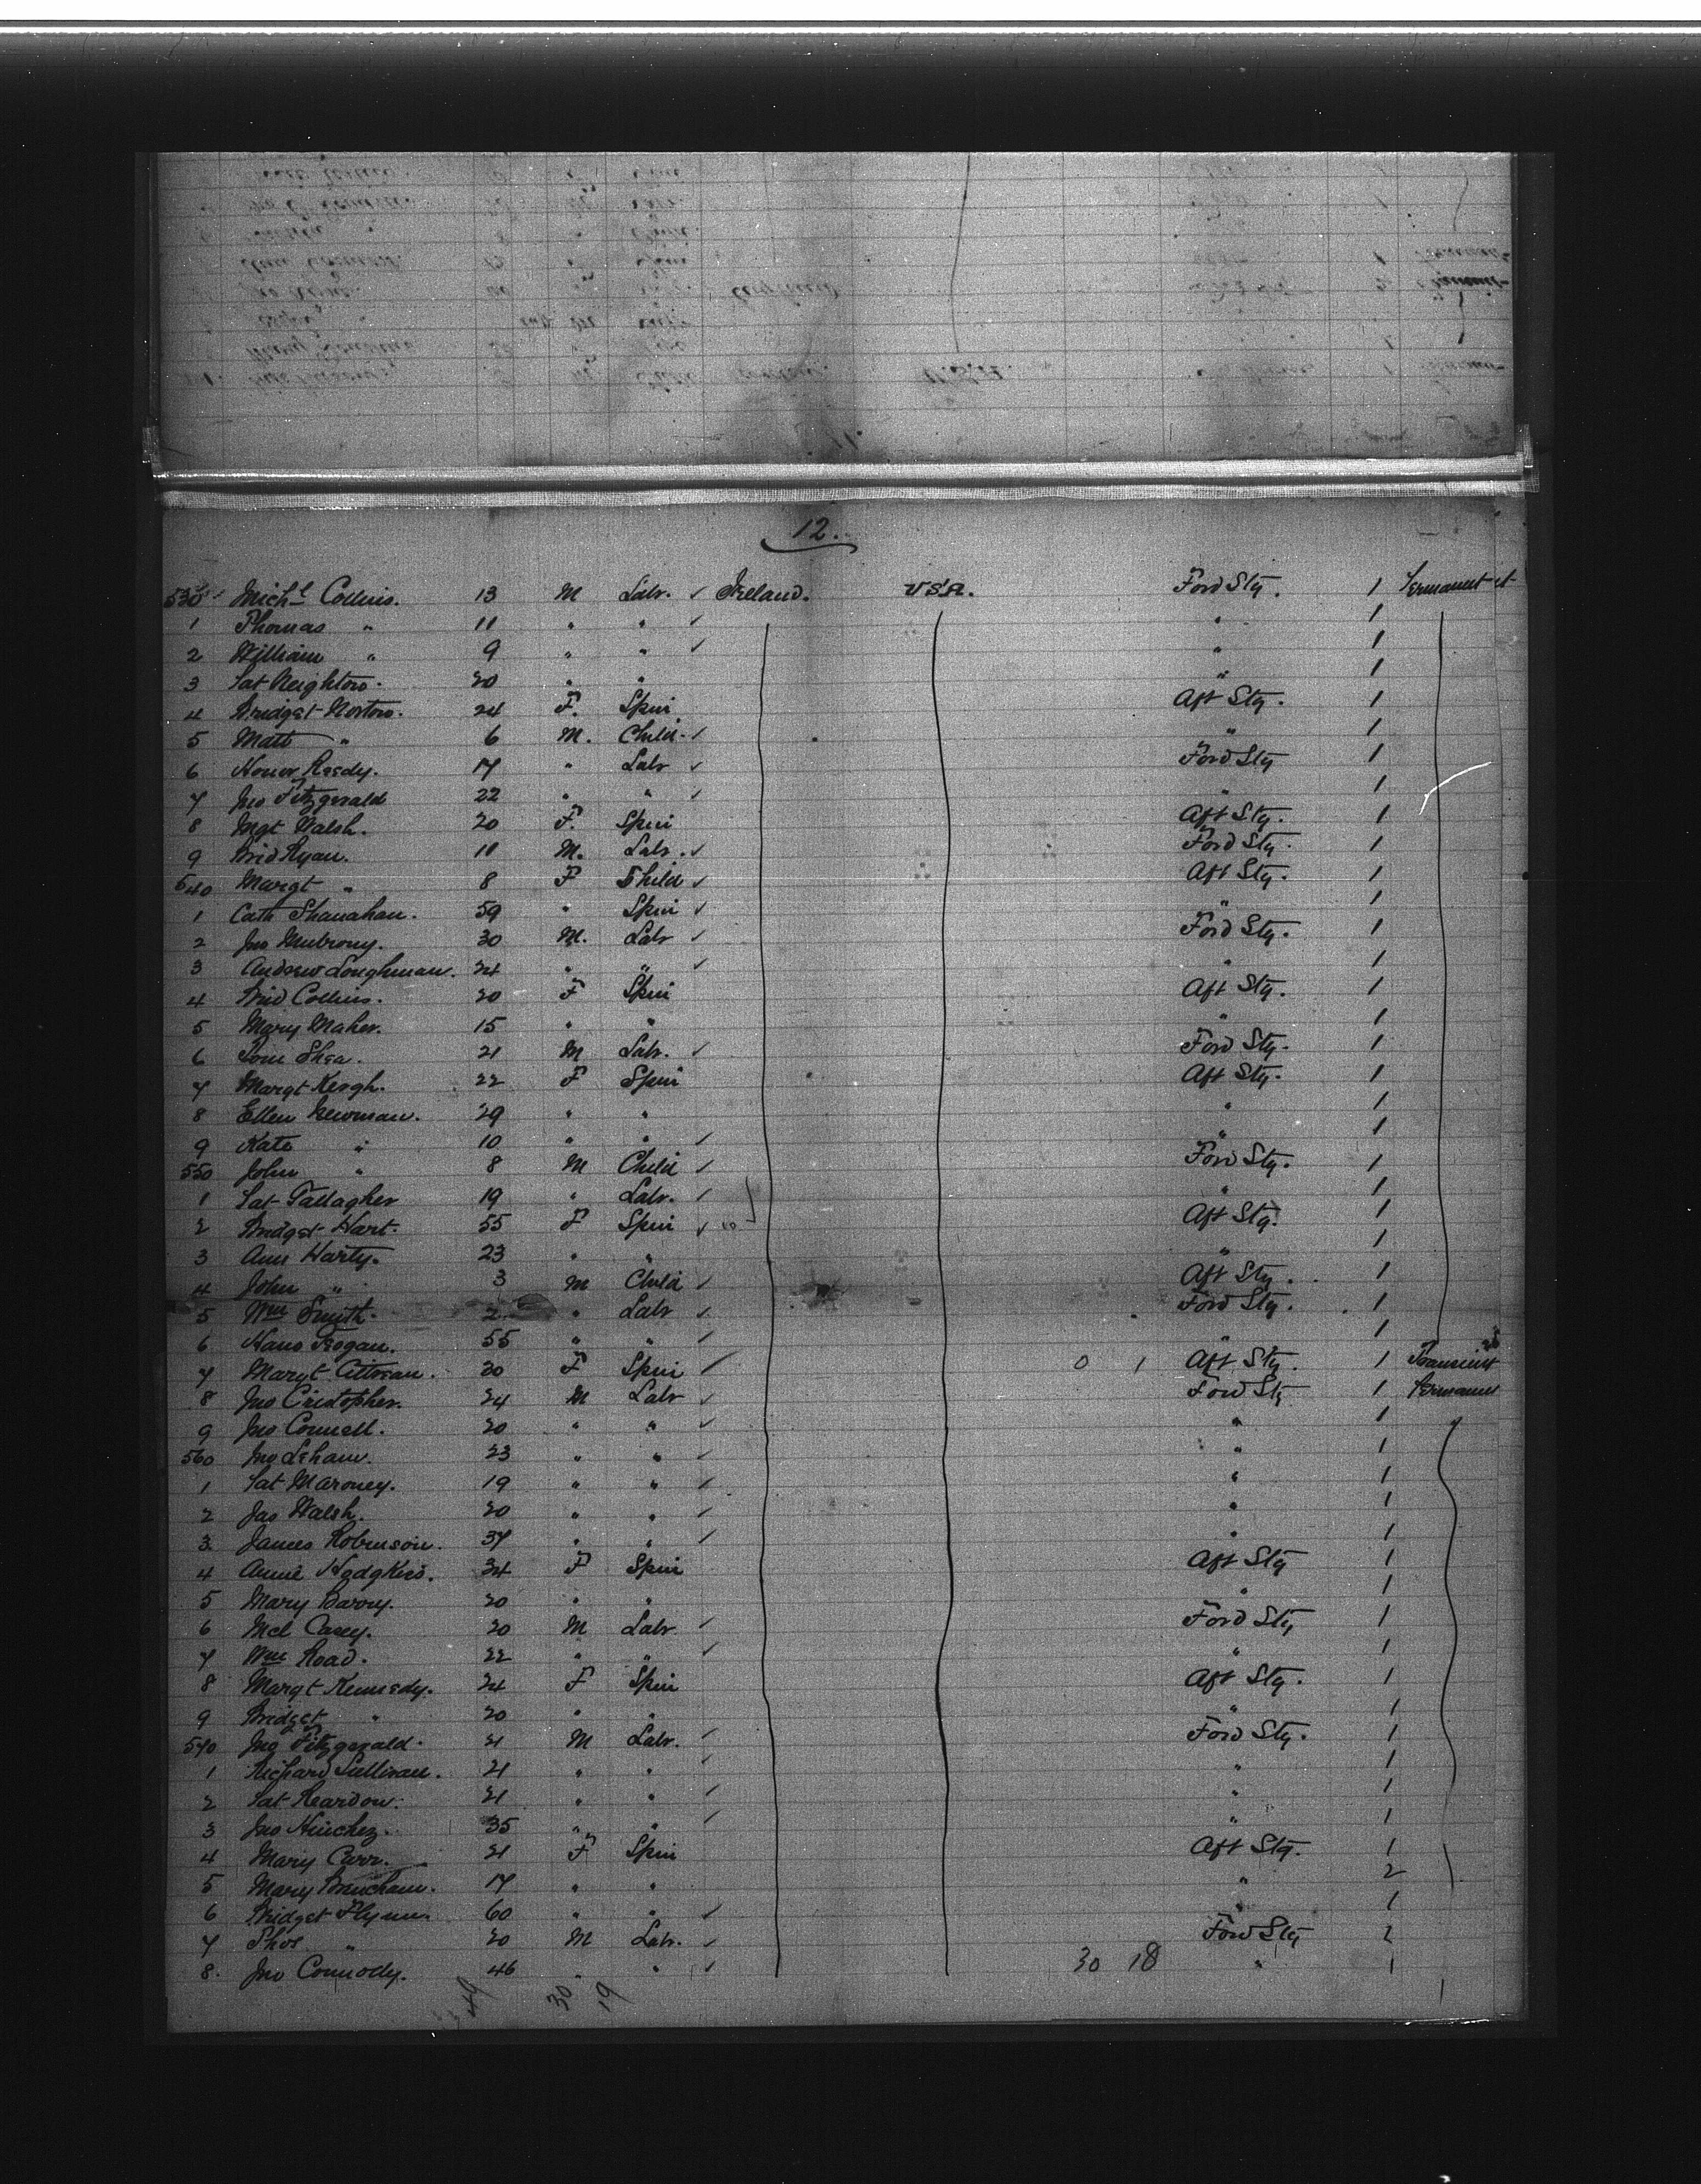 12.
530 Michl Collins. 13 M Labr. ✓ Ireland. USA. Ford Stg. 1 Permanent
1 Thomas " 11 " " ✓ " 1
2 William " 9 " " ✓ " 1
3 Pat Neighton. 20 " " " 1
4 Bridget Norton. 24 F. Spin Aft Stg. 1
5 Matt " 6 M. Child. ✓ " 1
6 Honor Reedy. 17 " Labr ✓ Ford Stg 1
7 Jno Fitzgerald 22 " " ✓ " 1
8 Mgt Walsh. 20 F. Spin Aft Stg. 1
9 Brid Ryan. 11 M. Labr. ✓ Ford Stg. 1
540 Margt " 8 F Child ✓ Aft Stg. 1
1 Cath Shanahan. 59 " Spin ✓ " 1
2 Jno Mulrony. 30 M. Labr ✓ Ford Stg. 1
3 Andrew Loughman. 24 " " ✓ " 1
4 Brid Collins. 20 F Spin Aft Stg. 1
5 Mary Maher. 15 " " " 1
6 Tom Shea. 21 M Labr. ✓ Ford Stg. 1
7 Margt Keogh. 22 F Spin Aft Stg. 1
8 Ellen Newman. 29 " " " 1
9 Kate " 10 " " ✓ " 1
550 John " 8 M Child ✓ Ford Stg. 1
1 Pat Gallagher 19 " Labr. ✓ " 1
2 Bridget Hart. 55 F Spin ✓ Aft Stg. 1
3 Ann Harty. 23 " " " 1
4 John " 3 M Child ✓ Aft Stg. 1
5 Wm Smith. 2 " Labr ✓ Ford Stg. 1
6 55 " " ✓ " 1
7 Margt 30 F Spin ✓ 0 1 Aft Stg. 1 Transient
8 Jno Cristopher. 24 M Labr ✓ Ford Stg 1 Permanent
9 Jno Connell. 20 " " ✓ " 1
560 Jno Lehane. 23 " " ✓ " 1
1 Pat Maroney. 19 " " ✓ " 1
2 Jas Walsh. 20 " " ✓ " 1
3 James Robinson. 37 " " ✓ " 1
4 Annie Hodgkiss. 34 F Spin Aft Stg 1
5 Mary Barry. 20 " " " 1
6 Mcl Casey. 20 M Labr. ✓ Ford Stg 1
7 Wm Road. 22 " " ✓ " 1
8 Margt Kennedy. 24 F Spin Aft Stg. 1
9 Bridget " 20 " " " 1
570 Jno Fitzgerald. 21 M Labr. ✓ Ford Stg. 1
1 Richard Sullivan. 21 " " ✓ " 1
2 Pat Reardon. 21 " " ✓ " 1
3 Jno Hinchey. 35 " " ✓ " 1
4 Mary Carr. 21 F Spin Aft Stg. 1
5 Mary 17 " " " 2
6 Bridget Flynn. 60 " " ✓ " 1
7 Thos " 20 M Labr. ✓ Ford Stg 2
8. Jno Connody. 46 " " ✓ 30 18 " 1
49 30 19